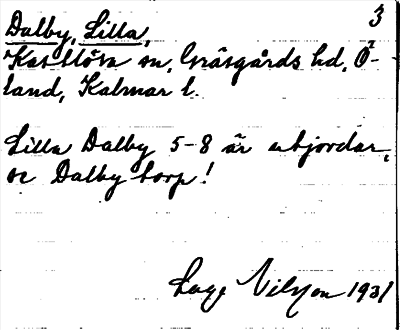 Dalby, Lilla, 3
Kastlösa sn, Gräsgårds hd, Ö-
land, Kalmar l.
Lilla Dalby 5-8 är utjordar,
se Dalby torp!
Lage Nilsson 1931